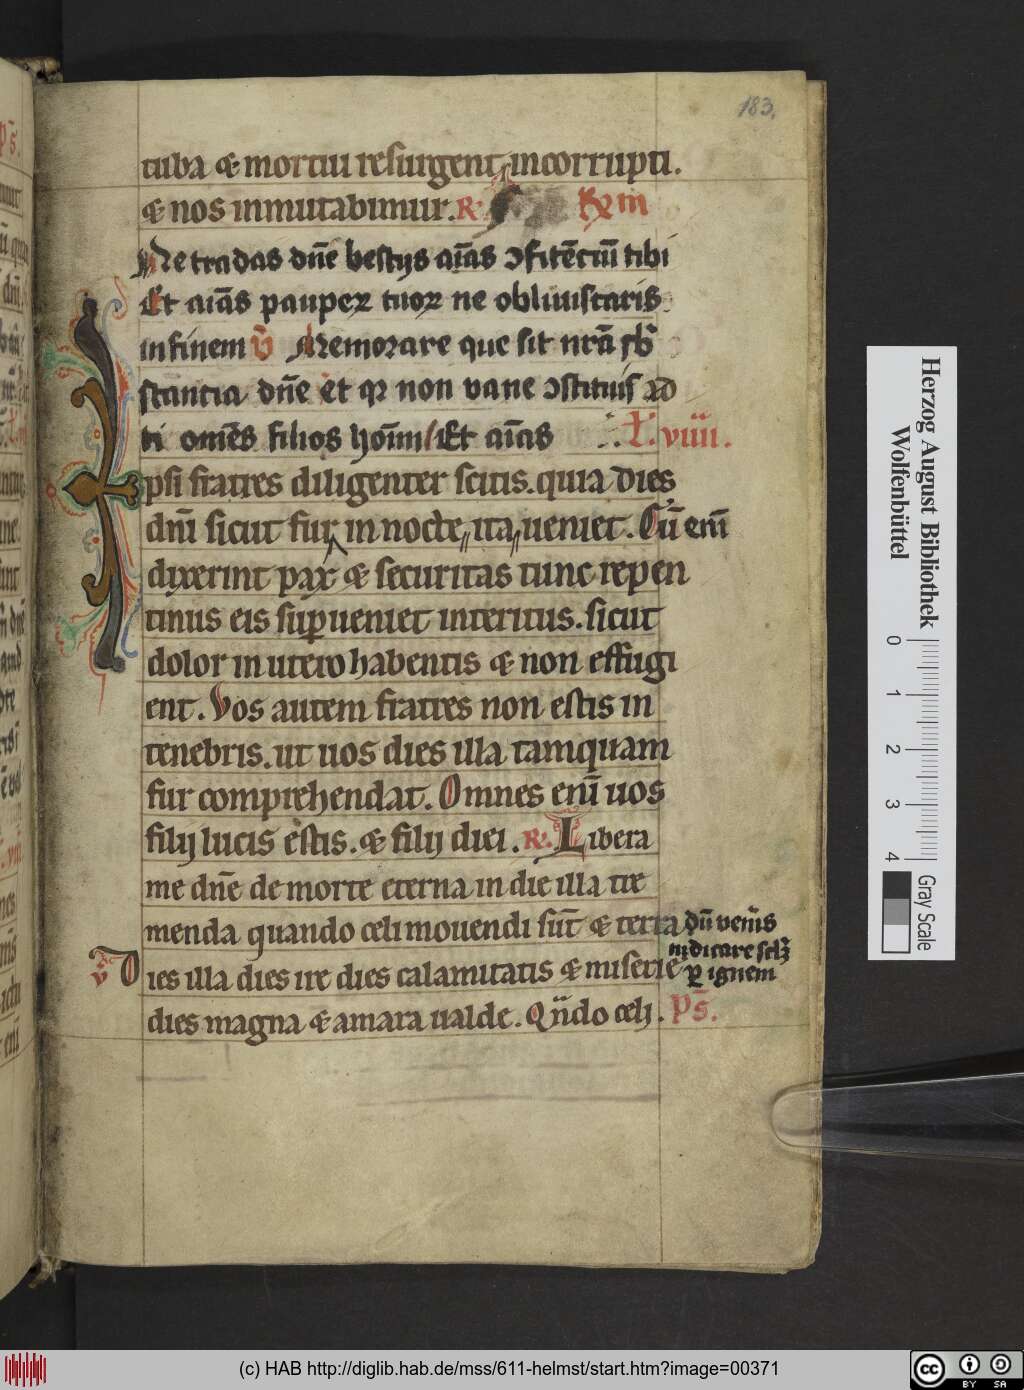 183.
tuba & mortui resurgent incorrupti.
& nos inmutabimur. R.
Ne tradas dn̄e bestijs aīas ↄfitētiū tibi
Et aīas pauperꝝ tuoꝝ ne obliuiscaris
in finem v̄ Memorare que sit nrā sb̄
stantia dn̄e et qꝛ non vane ↄstituis
ti omēs filios hoīm Et aīas L. viiii.
Ipsi fratres diligenter scitis. quia dies
dnī sicut fur in nocte ita ueniet. Cū enī
dixerint pax & securitas tunc repen
tinus eis suꝑueniet interitus. sicut
dolor in utero habentis & non effugi
ent. Vos autem fratres non estis in
tenebris. ut uos dies illa tamquam
fur comprehendat. Omnes enī uos
filij lucis estis. & filij diei. R. Libera
me dn̄e de morte eterna in die illa tre
menda quando celi mouendi sūt & terra dū venīs
iudicare sclꝫ
ꝑ ignem
v̄ Dies illa dies ire dies calamitatis & miserie
dies magna & amara ualde. Qn̄do celi. Ps̄.
Herzog August Bibliothek
Wolfenbüttel
0 1 2 3 4
Gray Scale
(c) HAB http://diglib.hab.de/mss/611-helmst/start.htm?image=00371
cc BY SA